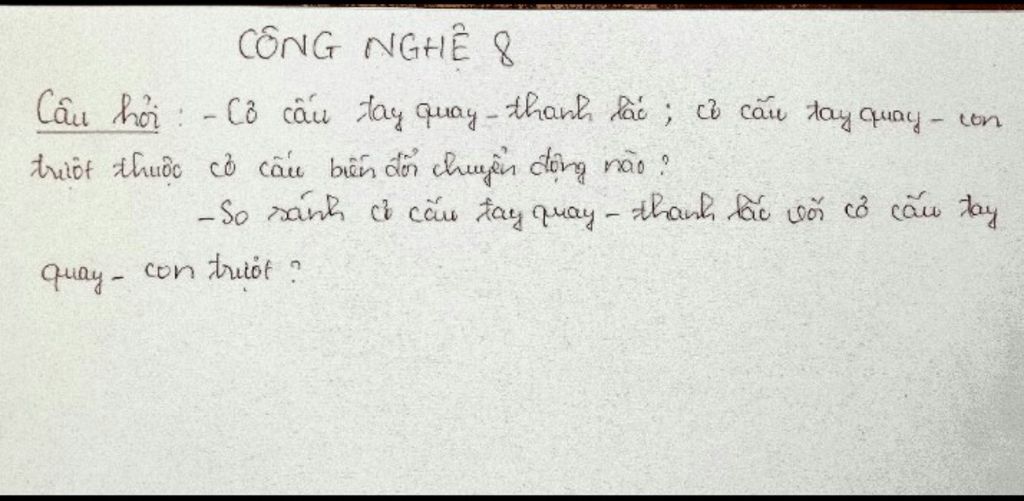 CÔNG NGHỆ 8
Câu hỏi : - Cơ cấu tay quay - thanh lắc ; cơ cấu tay quay - con
trượt thuộc cơ cấu biến đổi chuyển động nào ?
- So sánh cơ cấu tay quay - thanh lắc với cơ cấu tay
quay - con trượt ?